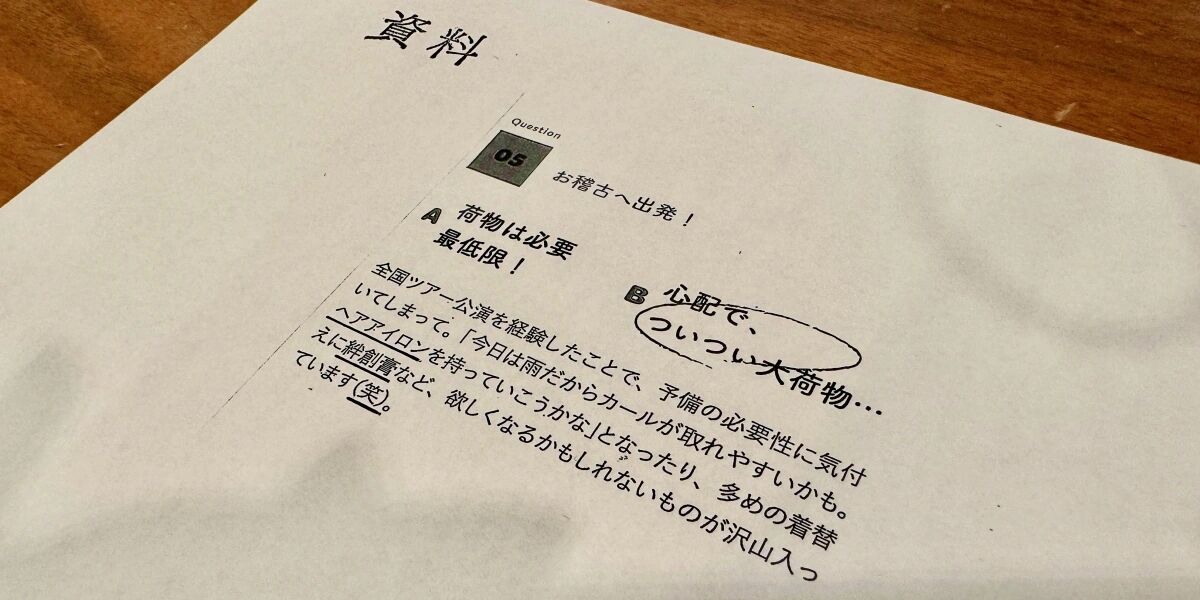 資料
Question
05
お稽古へ出発！
A 荷物は必要
最低限！
B 心配で、
ついつい大荷物…
全国ツアー公演を経験したことで、予備の必要性に気付
いてしまって。「今日は雨だからカールが取れやすいかも。
ヘアアイロンを持っていこうかな」となったり、多めの着替
えに絆創膏など、欲しくなるかもしれないものが沢山入っ
ています(笑)。